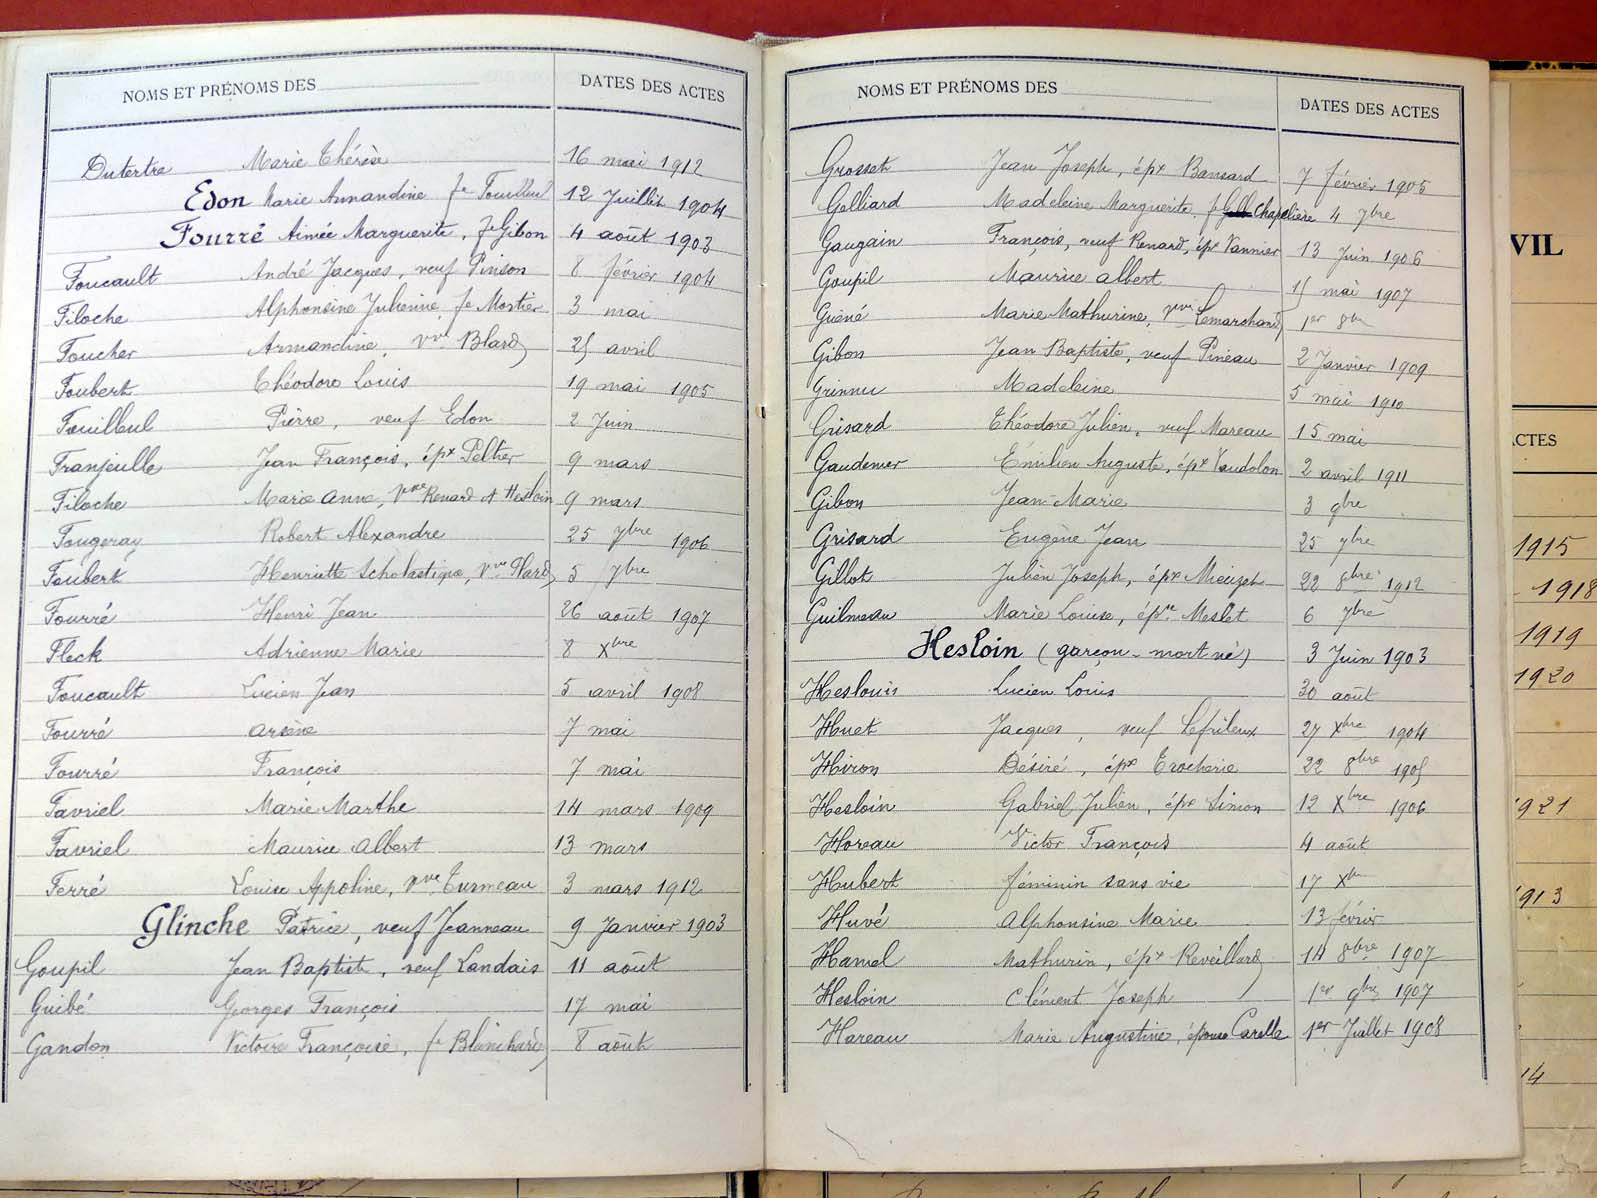 NOMS ET PRÉNOMS DES DATES DES ACTES
Dutertre Marie Thérèse 16 mai 1912
Edon Marie Amandine fe Fouilleul 12 Juillet 1904
Fourré Aimée Marguerite, fe Gibon 4 août 1903
Foucault André Jacques, veuf Pinson 8 février 1904
Filoche Alphonsine Julienne, fe Mortier 3 mai
Foucher Armandine, vve Blard 25 avril
Foubert Théodore Louis 19 mai 1905
Fouilleul Pierre, veuf Edon 2 Juin
Franjeulle Jean François, épx Peltier 9 mars
Filoche Marie Anne, Vve Renard et Hesloin 9 mars
Fougeray Robert Alexandre 25 7bre 1906
Foubert Henriette Scholastique, Vve Hard 5 7bre
Fourré Henri Jean 26 août 1907
Fleck Adrienne Marie 8 Xbre
Foucault Lucien Jean 5 avril 1908
Fourré Arsène 7 mai
Fourré François 7 mai
Favriel Marie Marthe 14 mars 1909
Favriel Maurice Albert 13 mars
Ferré Louise Appoline, Vve Turmeau 3 mars 1912
Glinche Patrice, veuf Jeanneau 9 Janvier 1903
Goupil Jean Baptiste, veuf Landais 11 août
Guibé Georges François 17 mai
Gandon Victoire Françoise, fe Blanchard 8 août
NOMS ET PRÉNOMS DES DATES DES ACTES
Grosset Jean Joseph, épx Bansard 7 février 1905
Galliard Madeleine Marguerite, f Chapelière 4 7bre
Gaugain François, veuf Renard, épx Vannier 13 Juin 1906
Goupil Maurice Albert 15 mai 1907
Guéné Marie Mathurine, vve Lemarchand 1er 8bre
Gibon Jean Baptiste, veuf Pineau 2 Janvier 1909
Grinnu Madeleine 5 mai 1910
Grisard Théodore Julien, veuf Mareau 15 mai
Gaudemer Emilien Auguste, épx Vaudolon 2 avril 1911
Gibon Jean-Marie 3 9bre
Grisard Eugène Jean 25 7bre
Gillot Julien Joseph, épx Mieuzet 22 8bre 1912
Guilmeau Marie Louise, épse Meslet 6 7bre
Hesloin (garçon - mort né) 3 Juin 1903
Heslouis Lucien Louis 30 août
Huet Jacques, veuf Lefrileux 27 Xbre 1904
Hiron Désiré, épx Erocherie 22 8bre 1905
Hesloin Gabriel Julien, épx Simon 12 Xbre 1906
Horeau Victor François 4 août
Hubert féminin sans vie 17 Xbre
Huvé Alphonsine Marie 13 février
Hamel Mathurin, épx Reveillard 14 8bre 1907
Hesloin Clément Joseph 1er 9bre 1907
Hareau Marie Augustine, épouse Carelle 1er Juillet 1908
VIL
ACTES
1915
1918
1919
1920
1921
1913
14